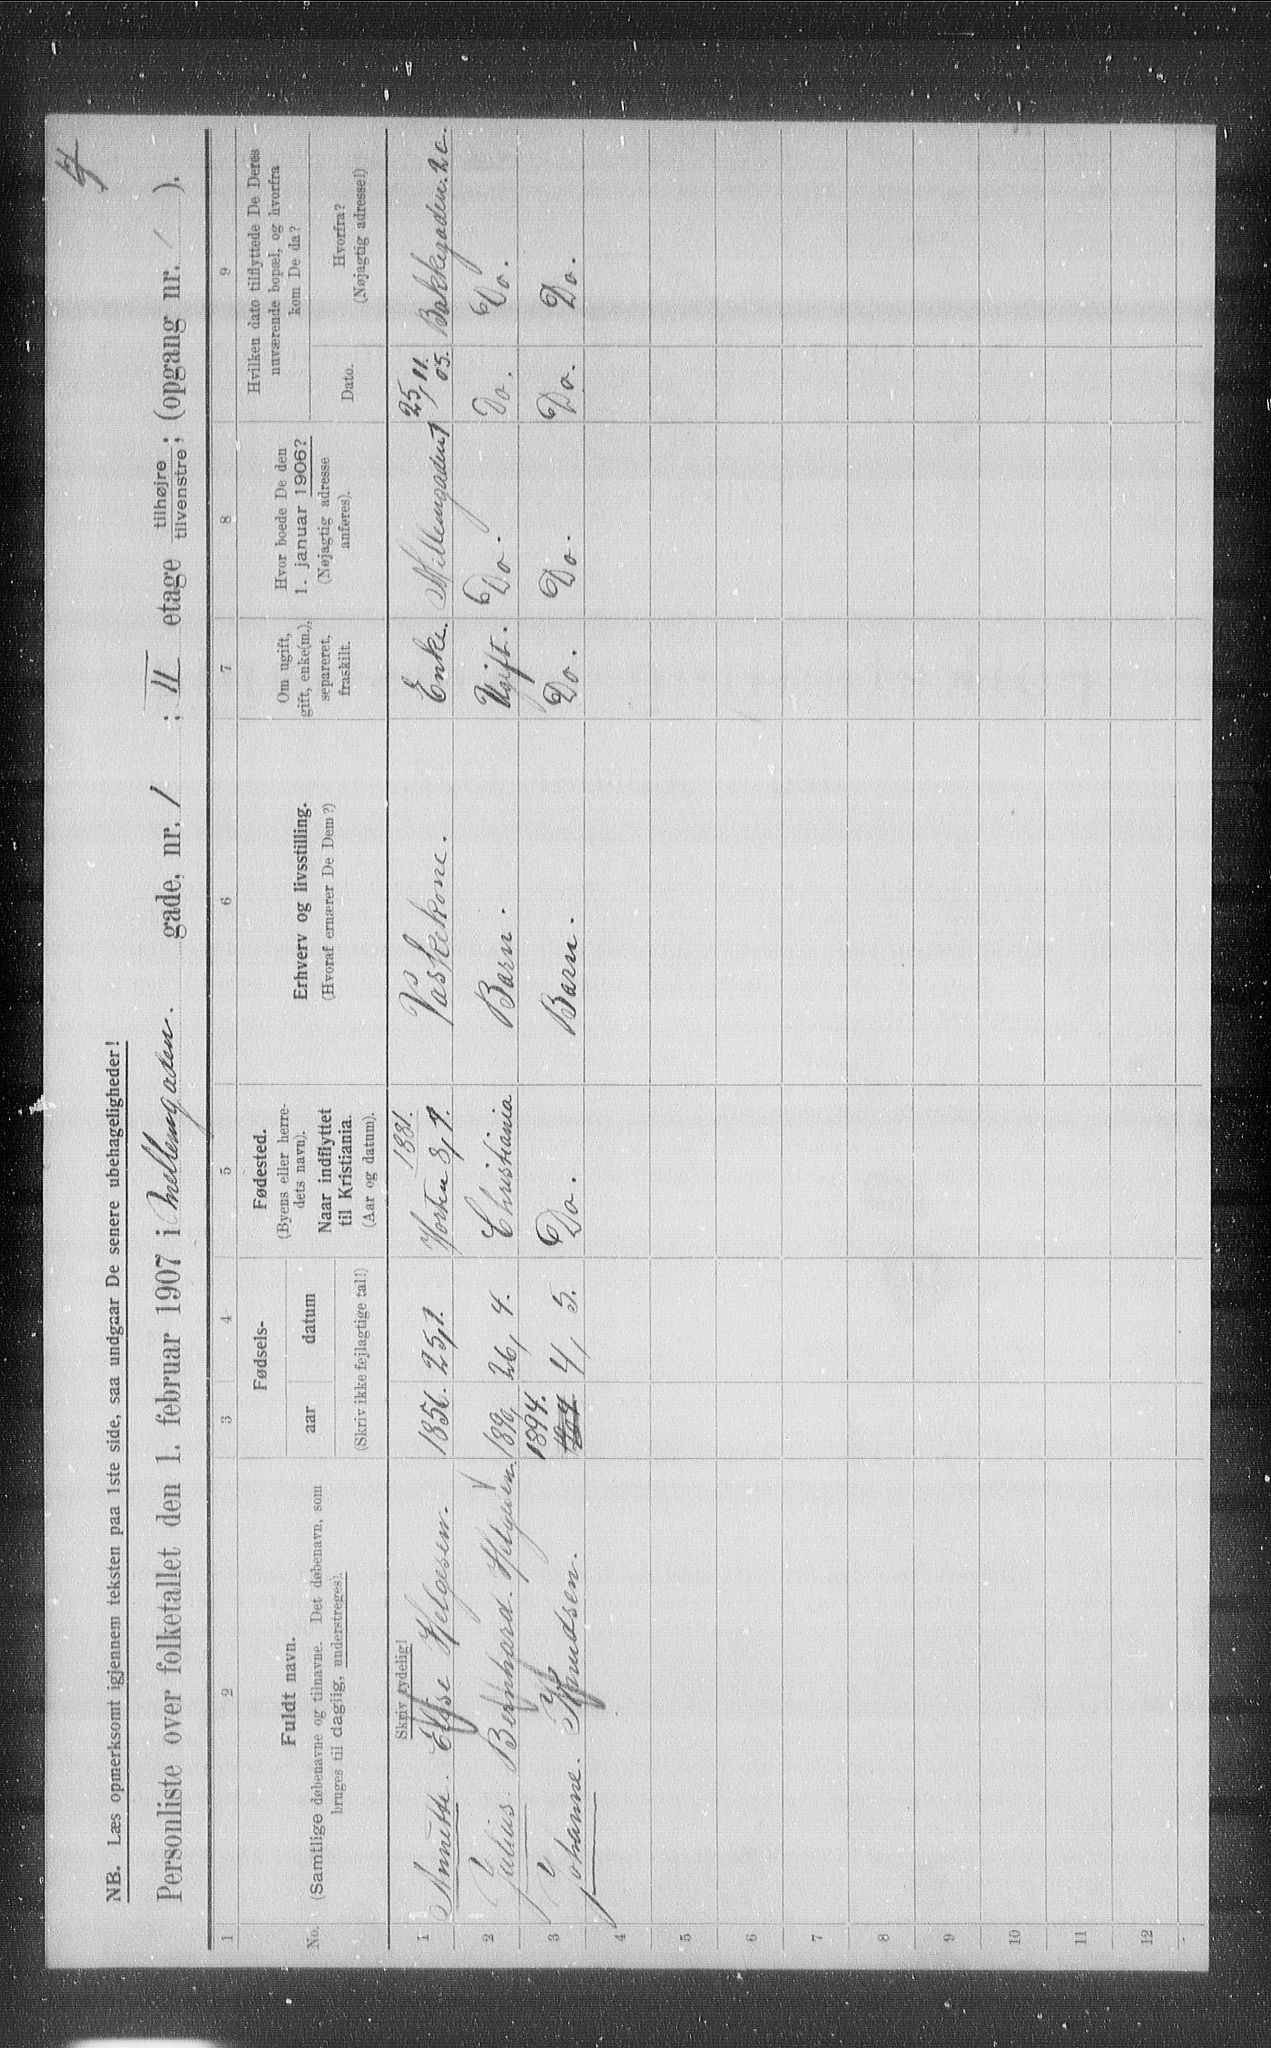 4
NB. Læs opmerksomt igjennem teksten paa 1ste side, saa undgaar De senere ubehageligheder!
Personliste over folketallet den 1. februar 1907 i Mellemgaden. gade, nr. 1 ; II etage tilhøjre tilvenstre; (opgang nr. / ).
1 2 3 4 5 6 7 8 9
No. Fuldt navn. (Samtlige døbenavne og tilnavne. Det døbenavn, som bruges til daglig, understreges).
Fødsels- aar datum (Skriv ikke fejlagtige tal!)
Fødested. (Byens eller herredets navn). Naar indflyttet til Kristiania. (Aar og datum).
Erhverv og livsstilling. (Hvoraf ernærer De Dem?)
Om ugift, gift, enke(m.), separeret, fraskilt.
Hvor boede De den 1. januar 1906? (Nøjagtig adresse anføres).
Hvilken dato tilflyttede De Deres nuværende bopæl, og hvorfra kom De da?
Dato. Hvorfra? (Nøjagtig adresse!)
Skriv tydelig!
1 Annette. Elise Helgesen. 1856. 25/1. Horten 8/9. 1881. Vaskekone. Enke. Mellemgaden 1 25/11. 05. Bakkegaden. 2c.
2 Julius. Bernhard. Helgesen. 1890, 26/4. Christiania Barn. Ugift. Do. Do. Do.
3 Johanne. Knudsen. 1894. 4/5. Do. Barn. Do. Do. Do. Do.
4
5
6
7
8
9
10
11
12